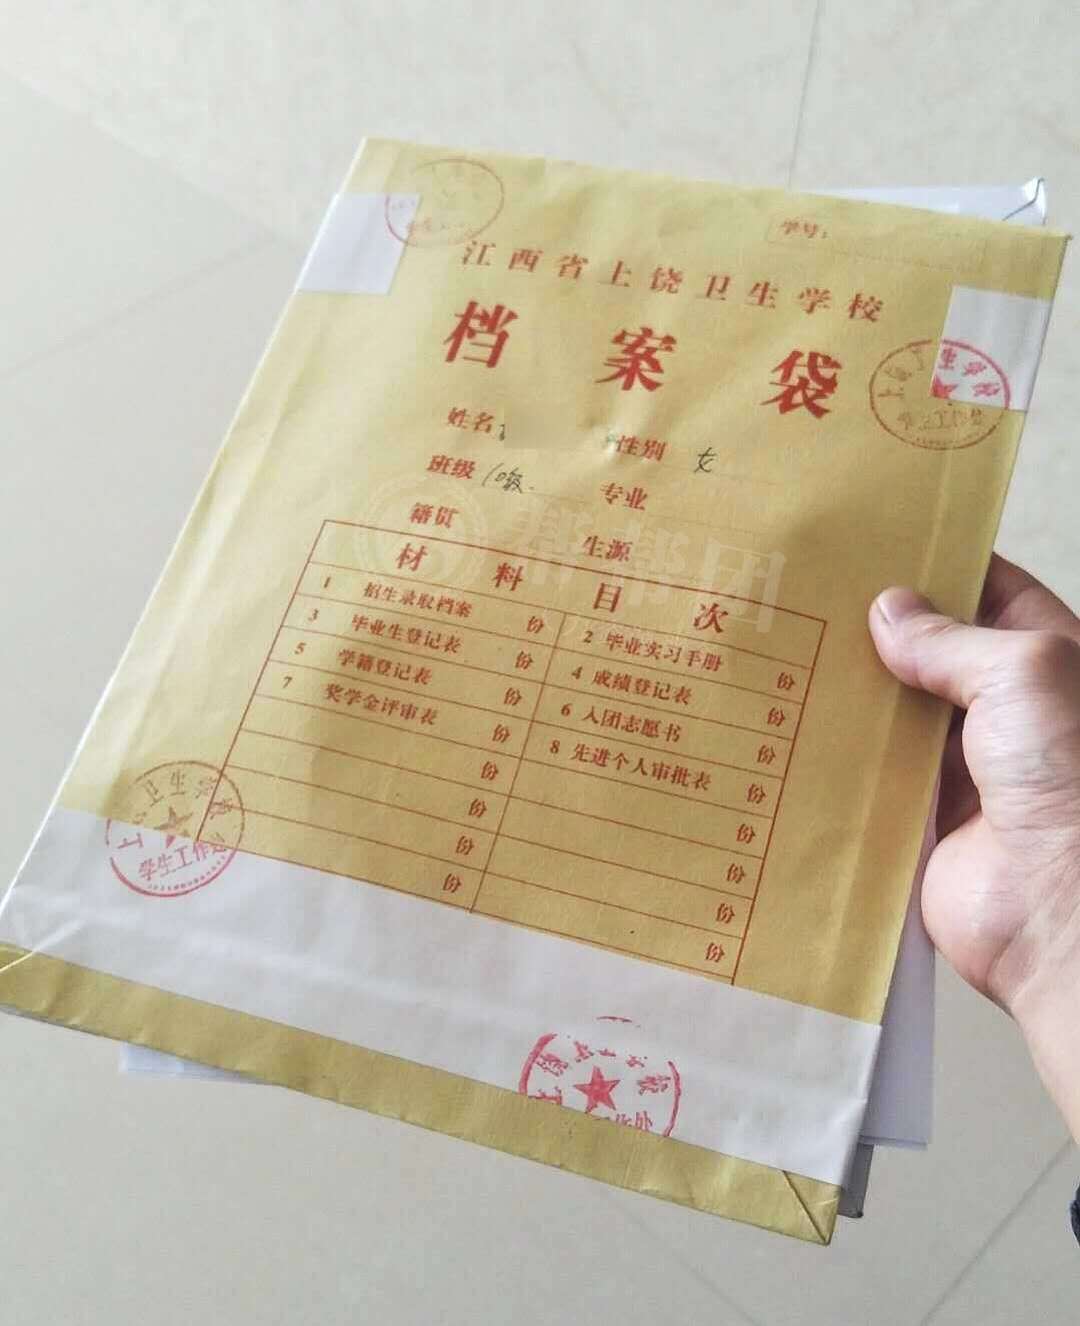 学号:
江西省上饶卫生学校
档案袋
姓名 性别 女
班级 10级. 专业
籍贯 生源
材料目次
1 招生录取档案 份 2 毕业实习手册 份
3 毕业生登记表 份 4 成绩登记表 份
5 学籍登记表 份 6 入团志愿书 份
7 奖学金评审表 份 8 先进个人审批表 份
份 份
份 份
份 份
份 份
卫生学校
学生工作处
帮帮团